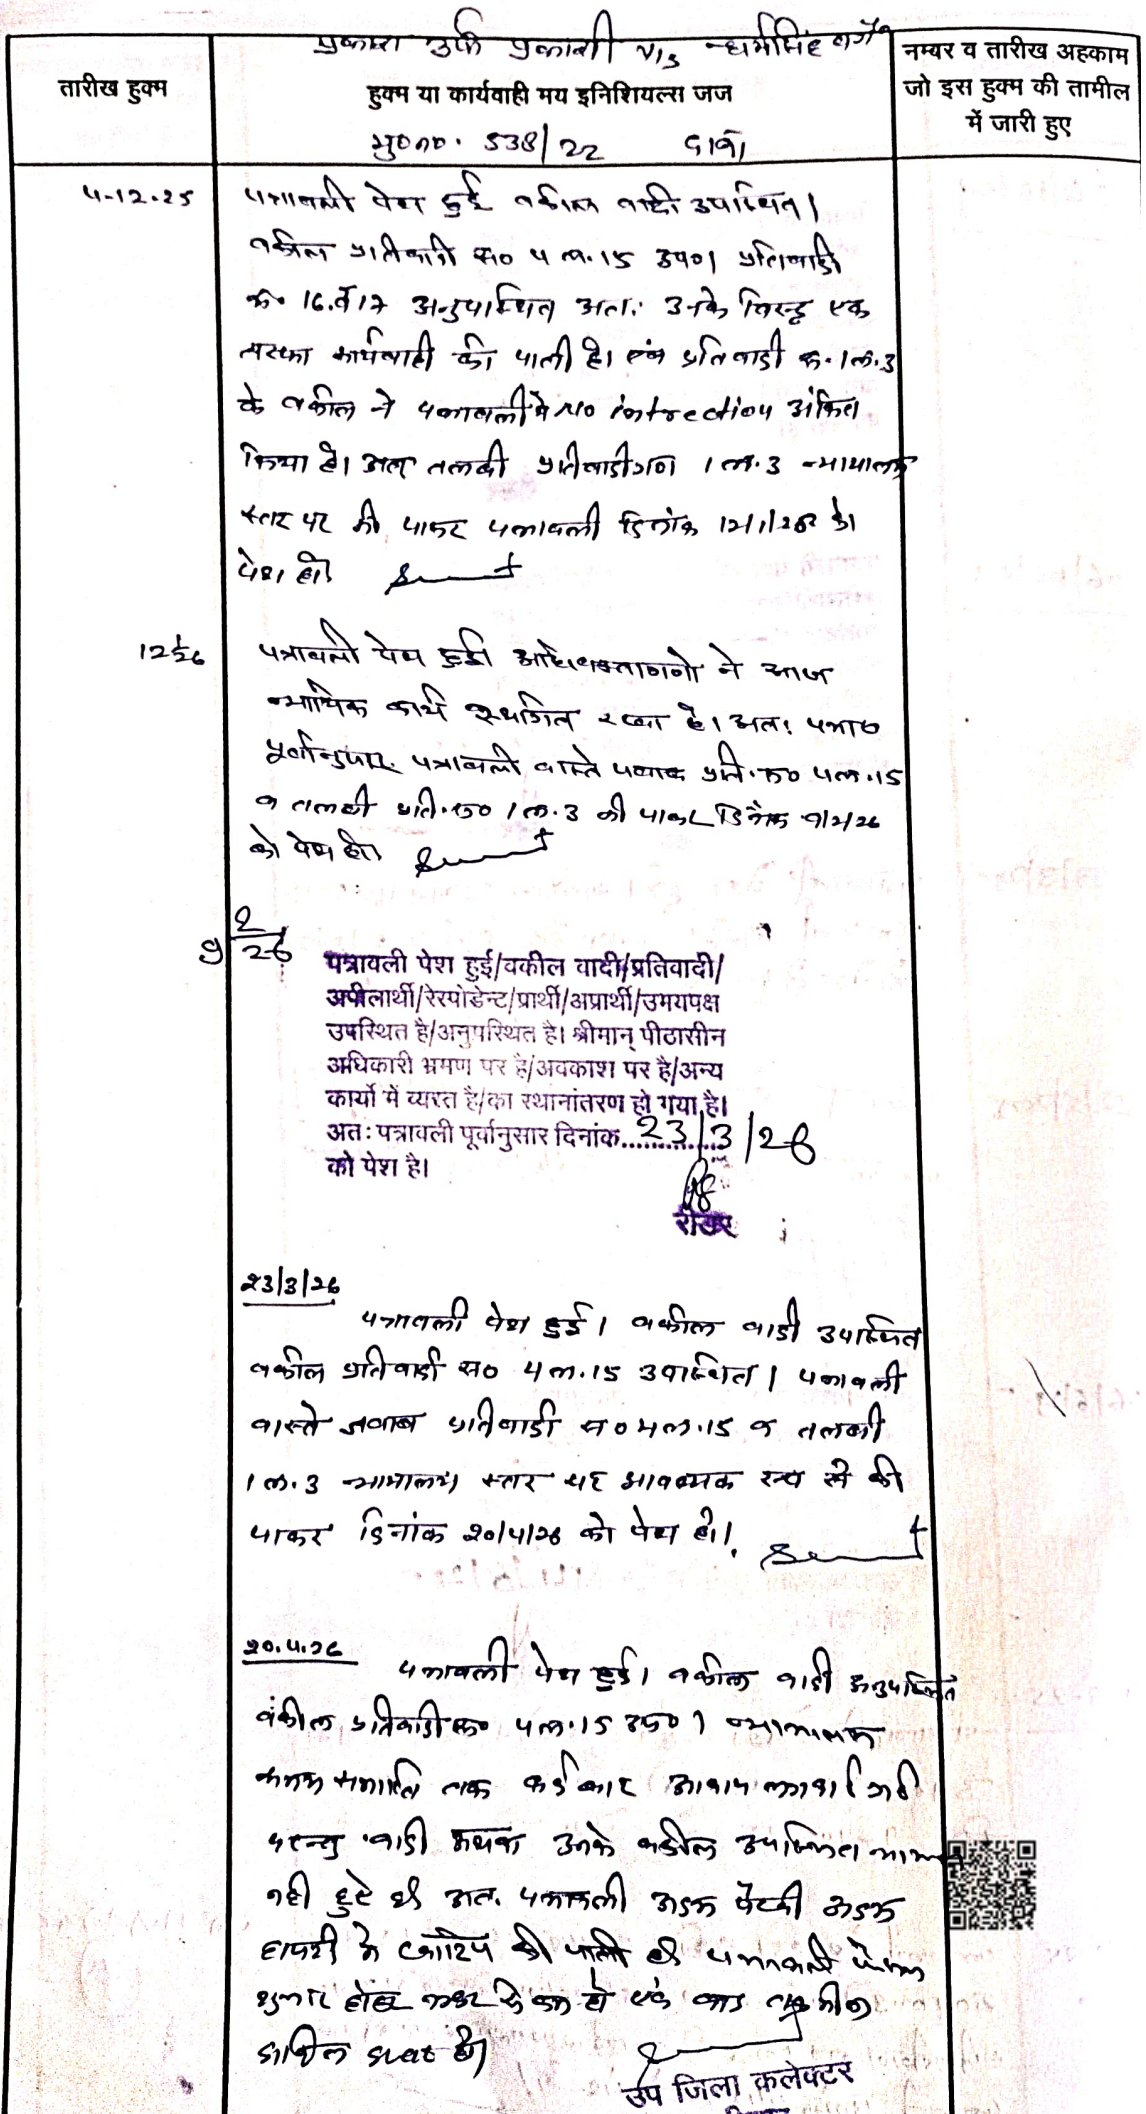 प्रकाश उर्फ प्रकाशी v/s धर्मसिंह वगै०
तारीख हुक्म
हुक्म या कार्यवाही मय इनिशियल्स जज
नम्बर व तारीख अहकाम
जो इस हुक्म की तामील
में जारी हुए
मु०न०. 538/22 दावा
4-12-25
पत्रावली पेश हुई वकील वादी उपस्थित।
वकील प्रतिवादी स० 4 ल.15 उप०। प्रतिवादी
क्र० 16 व 17 अनुपस्थित अतः उनके विरुद्ध एक
तरफा कार्यवाही की जाती है। एवं प्रतिवादी क्र. 1 ल.3
के वकील ने पत्रावली में No intrection अंकित
किया है। अतः तलबी प्रतिवादीगण 1 ल.3 न्यायालय
स्तर पर की जाकर पत्रावली दिनांक 12/1/26 को
पेश हो।
12/1/26
पत्रावली पेश हुई अधिवक्तागणो ने आज
न्यायिक कार्य स्थगित रखा है। अतः पत्रा०
पूर्वानुसार पत्रावली वास्ते जवाब प्रति.क्र० 4 ल.15
व तलबी प्रति.क्र० 1 ल.3 की जाकर दिनांक 9/2/26
को पेश हो।
9/2/26
पत्रावली पेश हुई/वकील वादी/प्रतिवादी/
अपीलार्थी/रेस्पोडेन्ट/प्रार्थी/अप्रार्थी/उभयपक्ष
उपस्थित है/अनुपस्थित है। श्रीमान् पीठासीन
अधिकारी भ्रमण पर है/अवकाश पर है/अन्य
कार्यो में व्यस्त है/का स्थानांतरण हो गया है।
अतः पत्रावली पूर्वानुसार दिनांक....23/3/26
को पेश है।
रीडर
23/3/26
पत्रावली पेश हुई। वकील वादी उपस्थित
वकील प्रतिवादी स० 4 ल.15 उपस्थित। पत्रावली
वास्ते जवाब प्रतिवादी स० 4 ल.15 व तलबी
1 ल.3 न्यायालय स्तर पर आवश्यक रूप से की
जाकर दिनांक 20/4/26 को पेश हो।
20.4.26
पत्रावली पेश हुई। वकील वादी अनुपस्थित
वकील प्रतिवादी क्र० 4 ल.15 उप०। न्यायालय
समय समाप्ति तक कई बार आवाज लगवाई गई
परन्तु वादी अथवा उनके वकील उपस्थित
नही हुए है। अतः पत्रावली अदम पैरवी अदम
हाजरी में खारिज की जाती है। पत्रावली फैसल
शुमार होकर नम्बर से कम हो एवं बाद तकमील
दाखिल दफ्तर हो।
उप जिला कलेक्टर